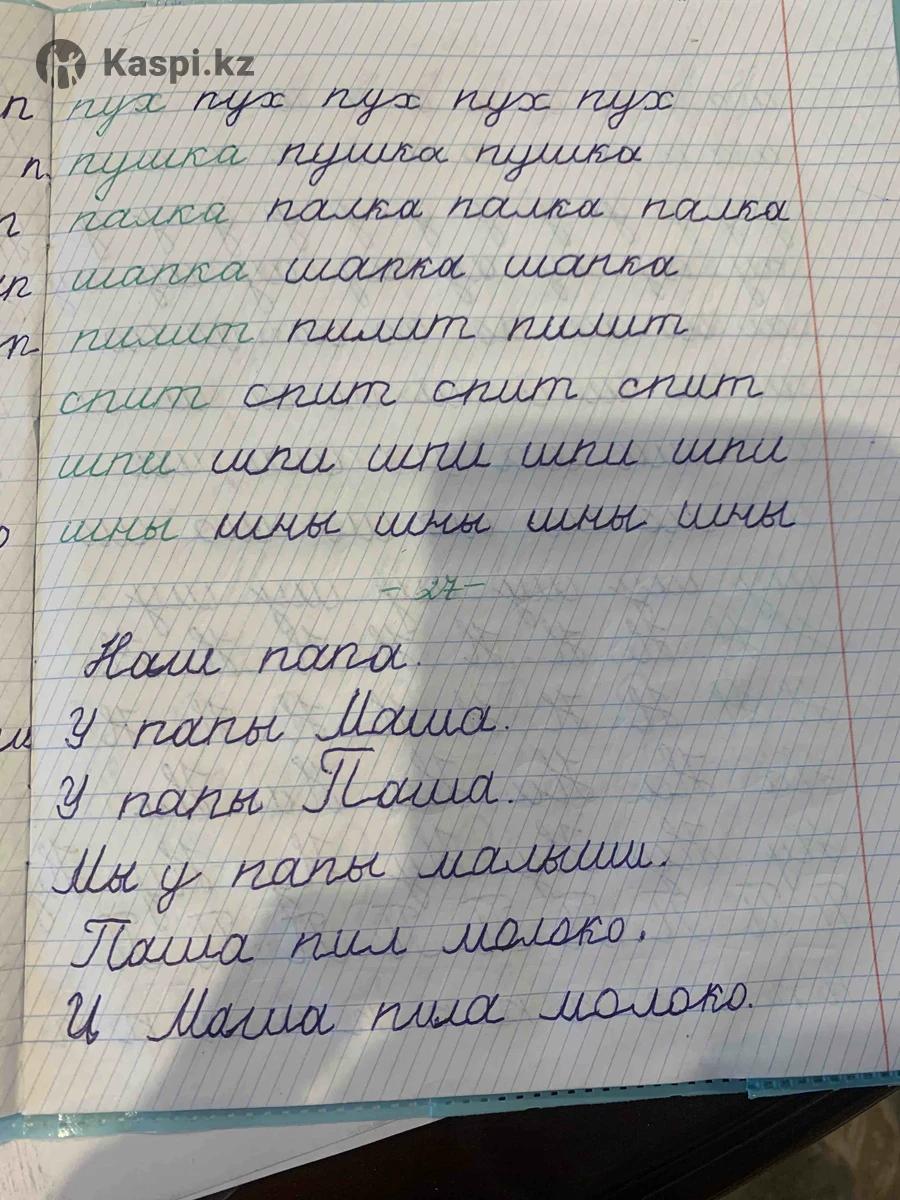 Kaspi.kz
п пух пух пух пух пух
п пушка пушка пушка
палка палка палка палка
п шапка шапка шапка
п пилит пилит пилит
спит спит спит спит
шпи шпи шпи шпи шпи
шны шны шны шны шны
- 27 -
Наш папа.
У папы Маша.
У папы Паша.
Мы у папы малыши.
Паша пил молоко.
И Маша пила молоко.